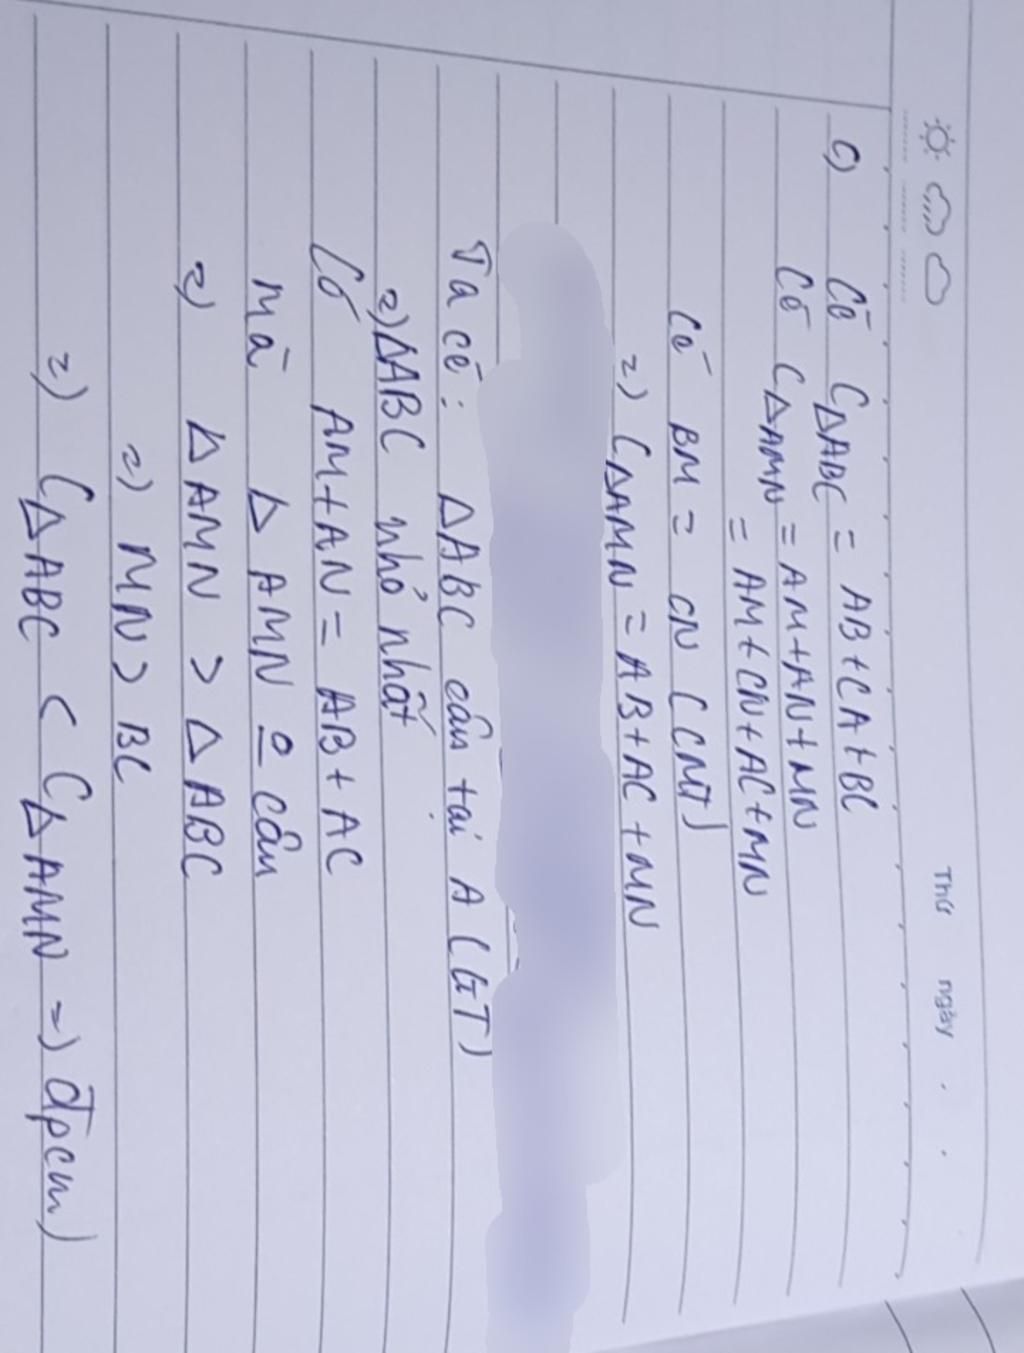 Thứ ngày
c) Có C△ABC = AB+CA+BC
Có C△AMN = AM+AN+MN
= AM+CN+AC+MN
Có BM = CN (CMT)
=) C△AMN = AB+AC+MN
Ta có: △ABC cân tại A (GT)
=) △ABC nhỏ nhất
Có AM+AN = AB+AC
mà △ AMN cân
=) △ AMN > △ ABC
=) MN > BC
=) C△ABC < C△AMN =) đpcm)